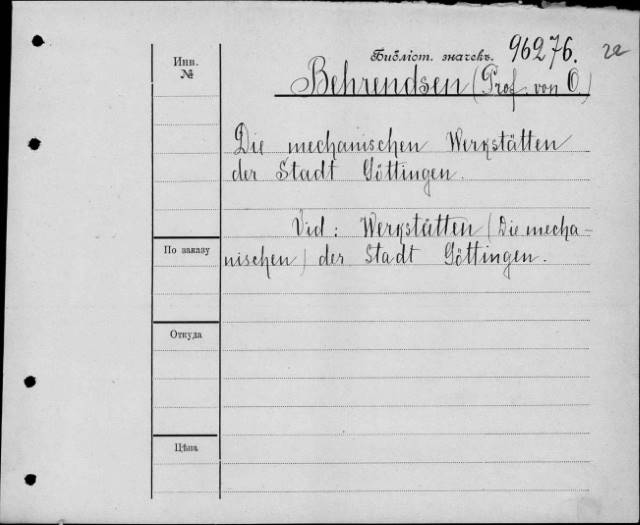 Библіот. значекъ. 96276. 22
Инв.
№
Behrendsen (Prof. von O.)
Die mechanischen Werkstätten
der Stadt Göttingen.
Vid: Werkstätten (Die mecha-
По заказу
nischen) der Stadt Göttingen.
Откуда
Цѣна